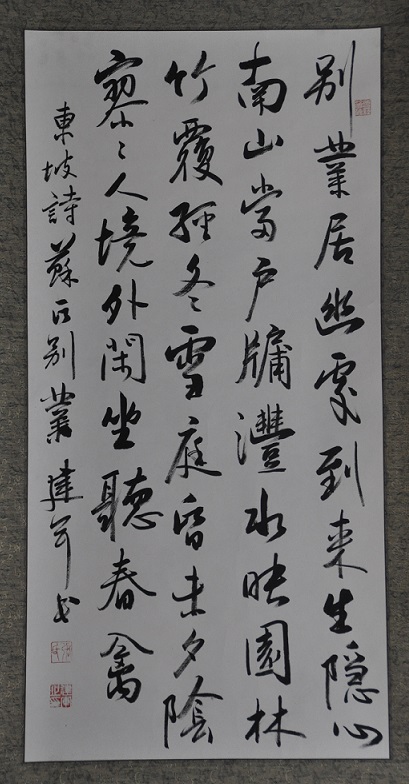 别業居幽處到来生隐心
南山當户牖灃水映園林
竹覆經冬雪庭昏未夕陰
寥〻人境外閑坐聽春禽
東坡詩蘇氏别業建军书